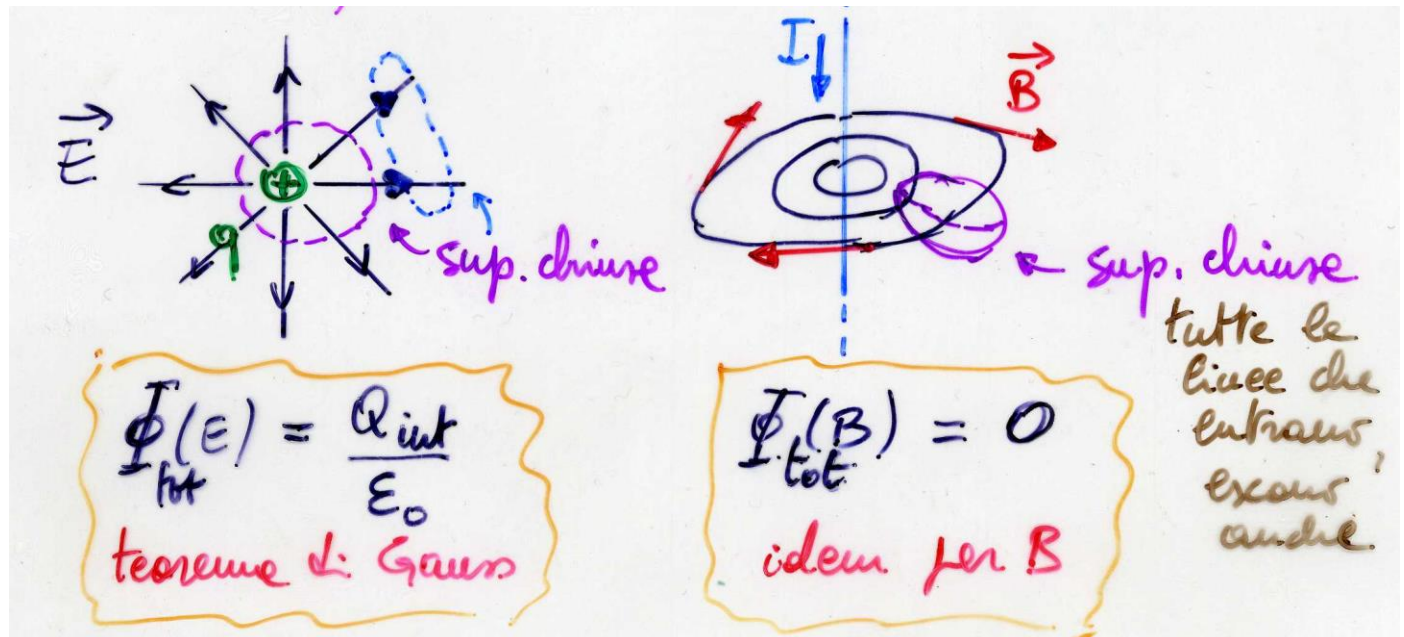 E
+
q
sup. chiuse
Φtot(E) = Qint/ε0
teorema di Gauss
I
B
sup. chiuse
tutte le
linee che
entrano,
escono
anche
Φtot(B) = 0
idem per B